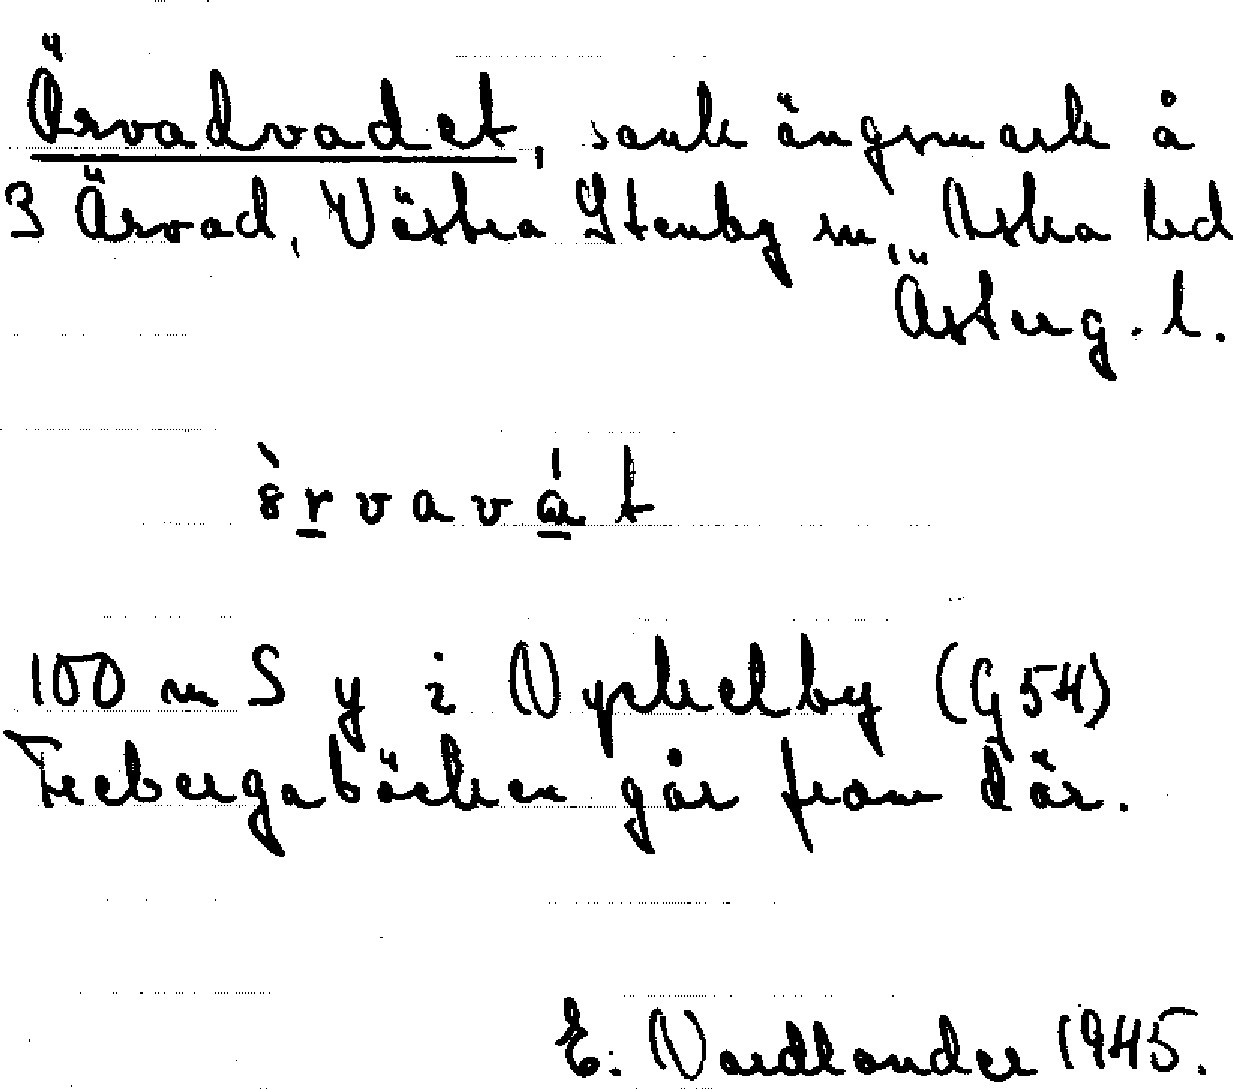 Ärvadvadet, sank ängsmark å
3 Ärvad, Västra Stenby sn, Aska hd
Österg. l.
100 m S y i Nyckelby (G54)
Freebergabäcken går fram där.
E. Nordlander 1945.